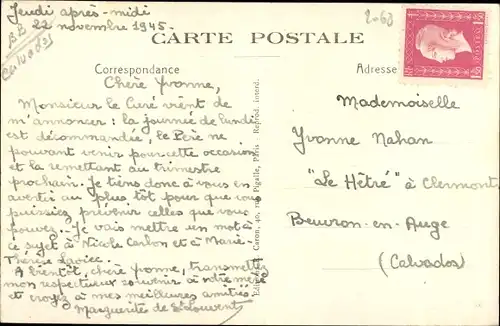 Jeudi après-midi
22 novembre 1945.
Calvados
2.60
CARTE POSTALE
Correspondance
Adresse
Chère Yvonne,
Monsieur le Curé vient de
m'annoncer : la journée de lundi
est décommandée, le Père ne
pouvant venir pour cette occasion
et la remettant au trimestre
prochain. Je tiens donc à vous en
avertir au plus tôt pour que vous
puissiez prévenir celles que vous
pouvez. Je vais mettre un mot à
ce sujet à Nicole Carbon et à Marie-
Thérèse
A bientôt, chère Yvonne, transmettez
mon respectueux souvenir à votre
et croyez à mes meilleures amitiés.
Marguerite de St Louvent
Caron, 40, rue Pigalle, Paris Reprod. interd.
Mademoiselle
Yvonne Nahan
"Le Hêtré" à Clermont
Beuvron-en-Auge
(Calvados)